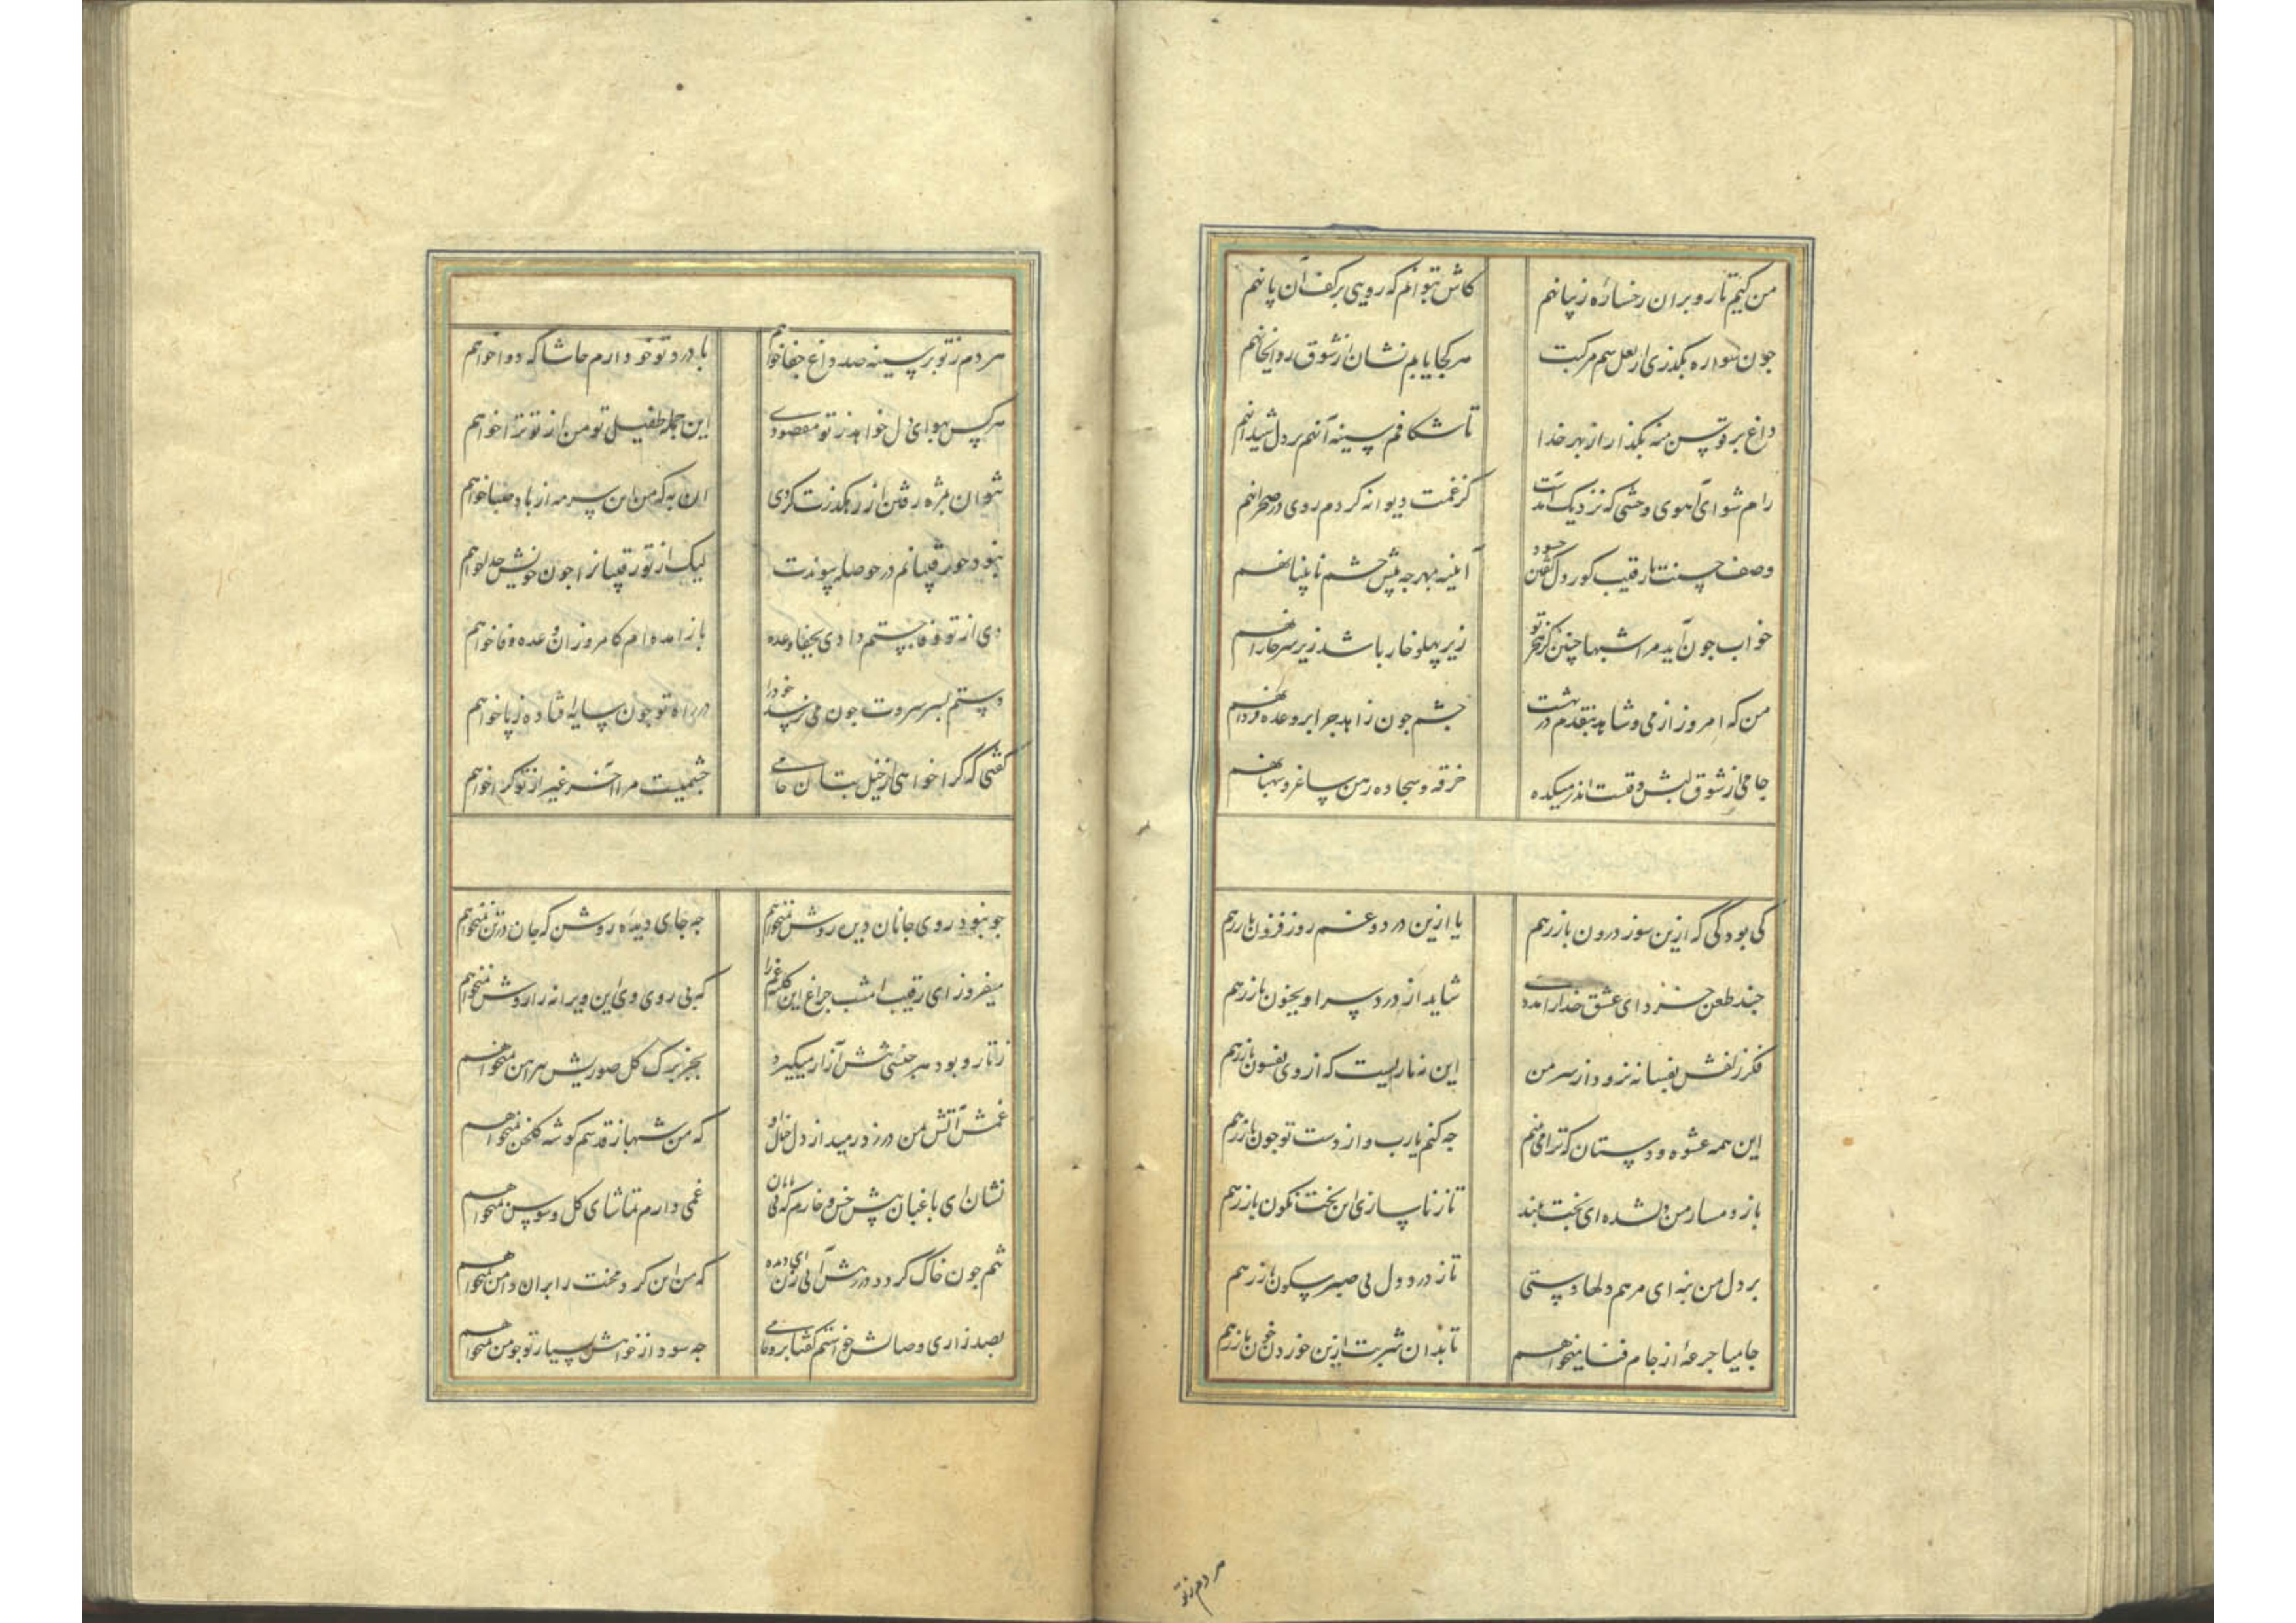 من کیم تا رو بران رخساره زیبا نهم
کاش بتوانم که رویی بر کف آن پا نهم
جون سواره بکذری از نعل سم مرکبت
هر کجا یابم نشان از شوق رو آنجا نهم
داغ بر قوتس منه بکذار از بهر خدا
تا شکافم سینه آنهم بر دل شیدا نهم
رام شو ای آهوی وحشی که نزدیک آمدست
کز غمت دیوانه کردم روی در صحرا نهم
وصف حسنت با رقیب کور دل کفتن جه سود
آینه بهر جه پیش جشم نابینا نهم
خواب جون آید مرا شبها جنین کز هجر تو
زیر پهلو خار باشد زیر سر خارا نهم
من که امروز از می و شاهد بنقدم در بهشت
جشم جون زاهد جرا بر وعده فردا نهم
جامی از شوق لبش وقتست اندر میکده
خرقه و سجاده رهن ساغر و صهبا نهم
کی بود کی که ازین سوز درون باز رهم
یا ازین درد و غم روز فزون باز رهم
جند طعن خرد ای عشق خدا را مددی
شاید از درد سر او بجنون باز رهم
فکر زلفش بفسانه نرود از سر من
این نه ماریست که از وی بفسون باز رهم
این همه عشوه و دستان که ترا می بینم
جه کنم یارب و از دست تو جون باز رهم
باز دمساز من دلشده ای بخت بلند
تا ز ناسازی این بخت نکون باز رهم
بر دل من بنه ای مرهم دلها دستی
تا ز درد دل بی صبر و سکون باز رهم
جامیا جرعه از جام فنا میخواهم
تا بدان شربت ازین خوردن خون باز رهم
هر دم ز تو
هر دم ز تو بر سینه صد داغ جفا خواهم
با درد تو خو دارم حاشا که دوا خواهم
هر کس بهوای دل خواهد ز تو مقصودی
این جمله طفیل تو من از تو ترا خواهم
نتوان بمژه رفتن از رهکذرت کردی
آن به که من این سرمه از باد صبا خواهم
نبود جو رقیبانم در حوصله پیوندت
لیک از تو رقیبانرا جون خویش جدا خواهم
دی از تو وفا جستم دادی بجفا وعده
باز آمده ام کامروز آن وعده وفا خواهم
دستم بسر سروت جون می نرسد خود را
در راه تو جون سایه افتاده ز پا خواهم
کفتی که کرا خواهی از خیل بتان جامی
جشمیست مرا آخر غیر از تو کرا خواهم
جو نبود روی جانان دیده روشن نمیخواهم
جه جای دیده روشن که جان در تن نمیخواهم
میفروز ای رقیب امشب جراغ این کلبه غم را
که بی روی وی این ویرانه را روشن نمیخواهم
ز تار و پود هر جنسی تنش آزار میکیرد
بجز برک کل صوریش پیراهن نمیخواهم
غمش آتش بمن در زد رمید از دل خیال او
که من شهبازقدسم کوشه کلخن نمیخواهم
نشان ای باغبان پیش خس و خارم که بی جانان
غمی دارم تماشای کل و سوسن نمیخواهم
تنم جون خاک کردد در رهش آبی زن ای دیده
که من این کرد محنت را بران دامن نمیخواهم
بصد زاری وصالش خواستم کفتا برو جامی
جه سود از خواهش بسیار تو جو من نمیخواهم